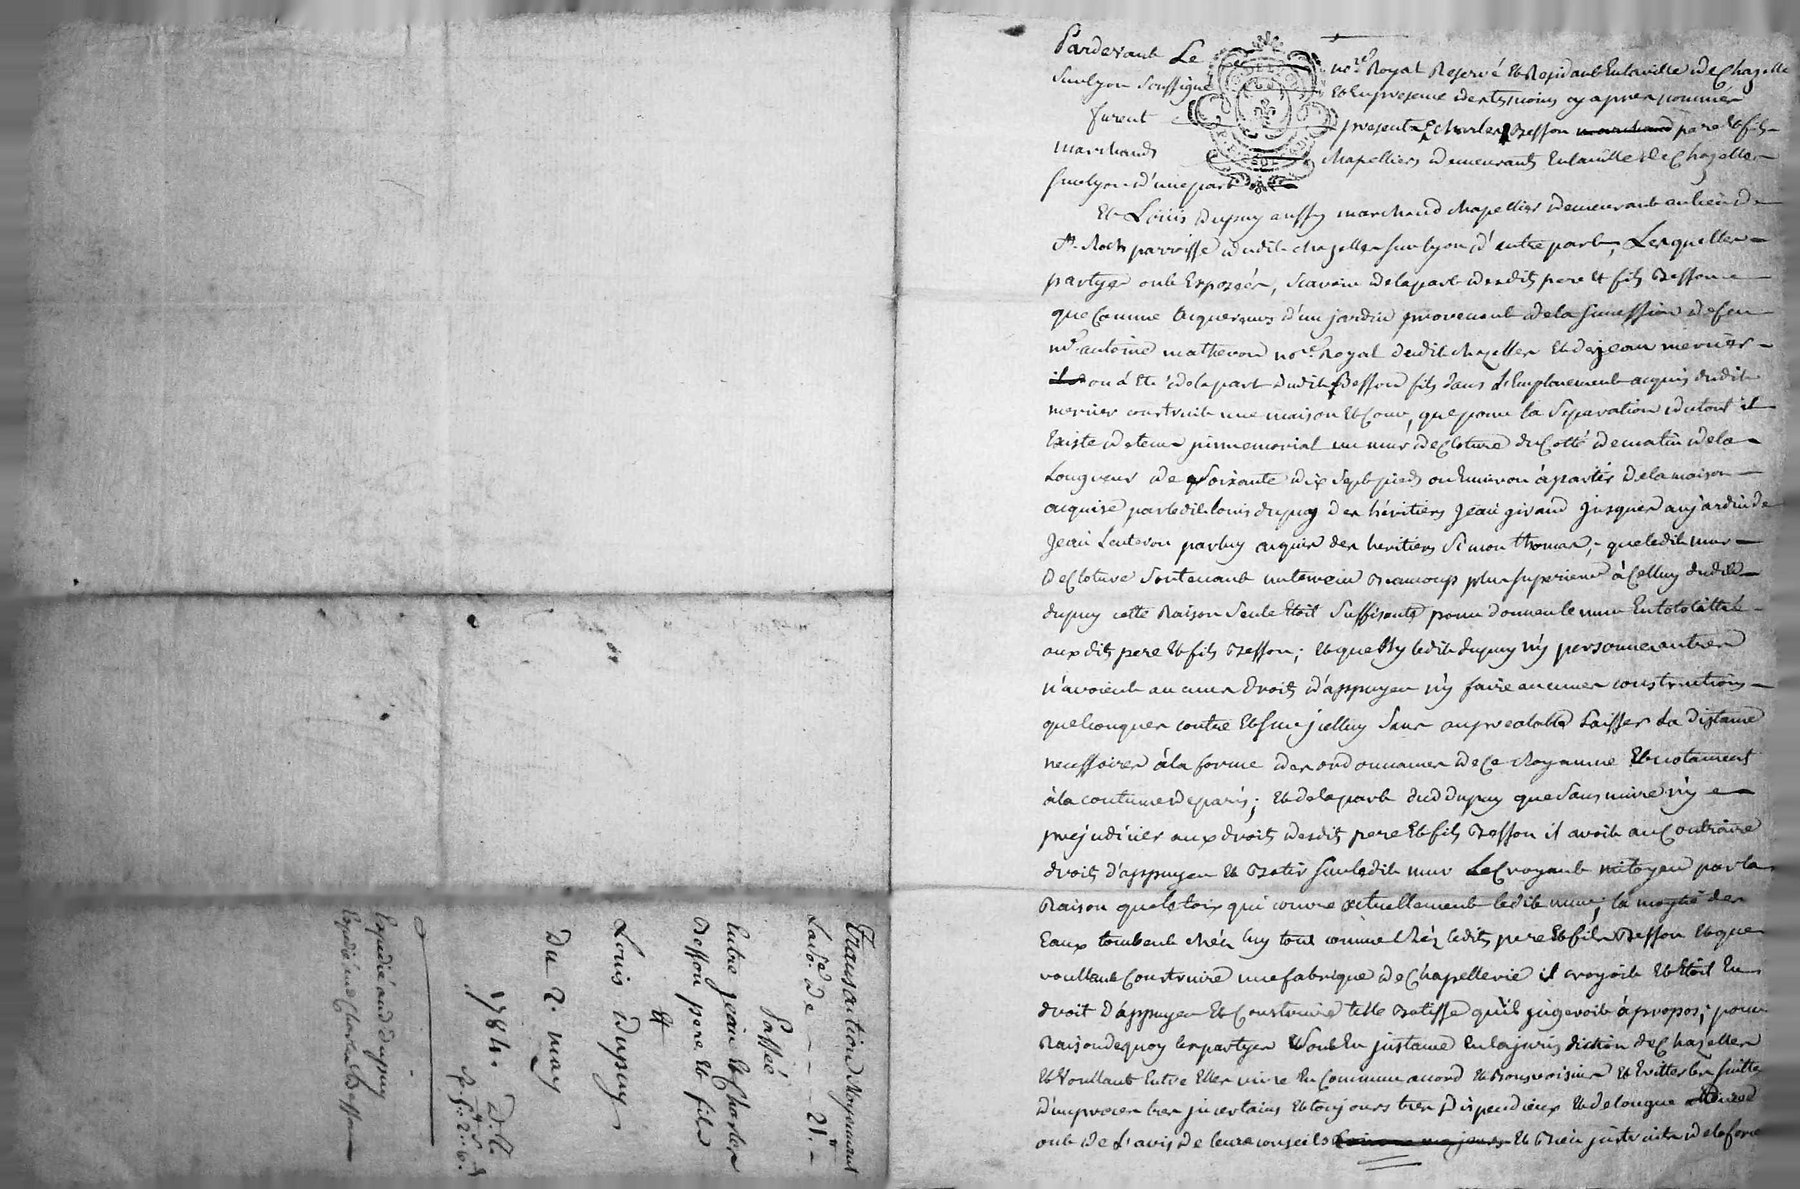 Transaction Moyennant
La so.e de - - - 21.tt -
Passée
Entre jean Et Charles
Besson pere Et fils
Et
Louis Dupuy
Du 2. may
1784.
Expedié aud Dupuy
Expedié au d Charles Besson
Pardevant Le no.re Royal Reservé Et Residant En la ville de Chazelle
Sur lyon Soussigné Et En presence des temoins cy apres nommés
Furent present Charles Besson marchand pere Et fils
marchands chapelliers demeurants En la ville de Chazelles
sur lyon d'une part
Et Loüis Dupuy aussy marchand chapellier demeurant au lieu de
St. Roch parroisse dudit chazelles sur lyon d'autre part, Lesquelles
partyes ont Exposées, Scavoir de la part desdits pere Et fils Besson
que Comme acquereurs d'un jardin provenant de la succession de feu
m.e antoine matheron no.re Royal dudit chazelles Et de jean mercier
ou á Eté de la part dudit Besson fils dans L'Emplacement acquis dudit
mercier construit une maison Et Cour, que pour la Separation du tout il
Existe de tems jmmemorial un mur de Cloture du Cotté de matin de la
Longueur de Soixante dix Sept pieds ou Environ á partir de la maison
acquise par ledit louis dupuy des héritiers Jean giraud jusques au jardin de
Jean par luy acquis des heritiers Simon thomas, que ledit mur
de Cloture Soutenant un terrein Beaucoup plus superieur à Celluy dudit
dupuy cette Raison Seule Etoit Suffisante pour donner le mur En totalitté
aux dits pere Et fils Besson; Et que Ny ledit dupuy n'y personne autres
n'avoient aucuns droits d'appuyer n'y faire aucunes constructions
quelconques contre Et sur jcelluy Sans au prealable Laisser La distance
necessaire á la forme des ordonnances de Ce Royaume Et notament
à la coutume de paris; Et de la part dud dupuy que Sans nuire n'y
prejudicier aux droits desdits pere Et fils Besson il avoit au Contraire
droit d'appuyer Et Batir sur ledit mur Le Croyant mitoyen par la
Raison que le toix qui couvre actuellement ledit mur, la moytié des
Eaux tombent chéz luy tout comme chéz lesdits pere Et fils Besson Et que
voullant Construire une fabrique de Chapellerie il croyoit Et Etoit En
droit d'appuyer Et Construire telle Batisse qu'il jugeroit á propos; pour
Raison de quoy les partyes Sont En jnstance En la juris diction de Chazelles
Et Voullant Entre Elles vivre En Commun accord Et Bons voisins Et Eviter les suittes
d'un procés tres jncertains Et toujours tres Dispendieux Et de longue durée
ont de L'avis de leurs conseils Et Bien jnstruits de la force